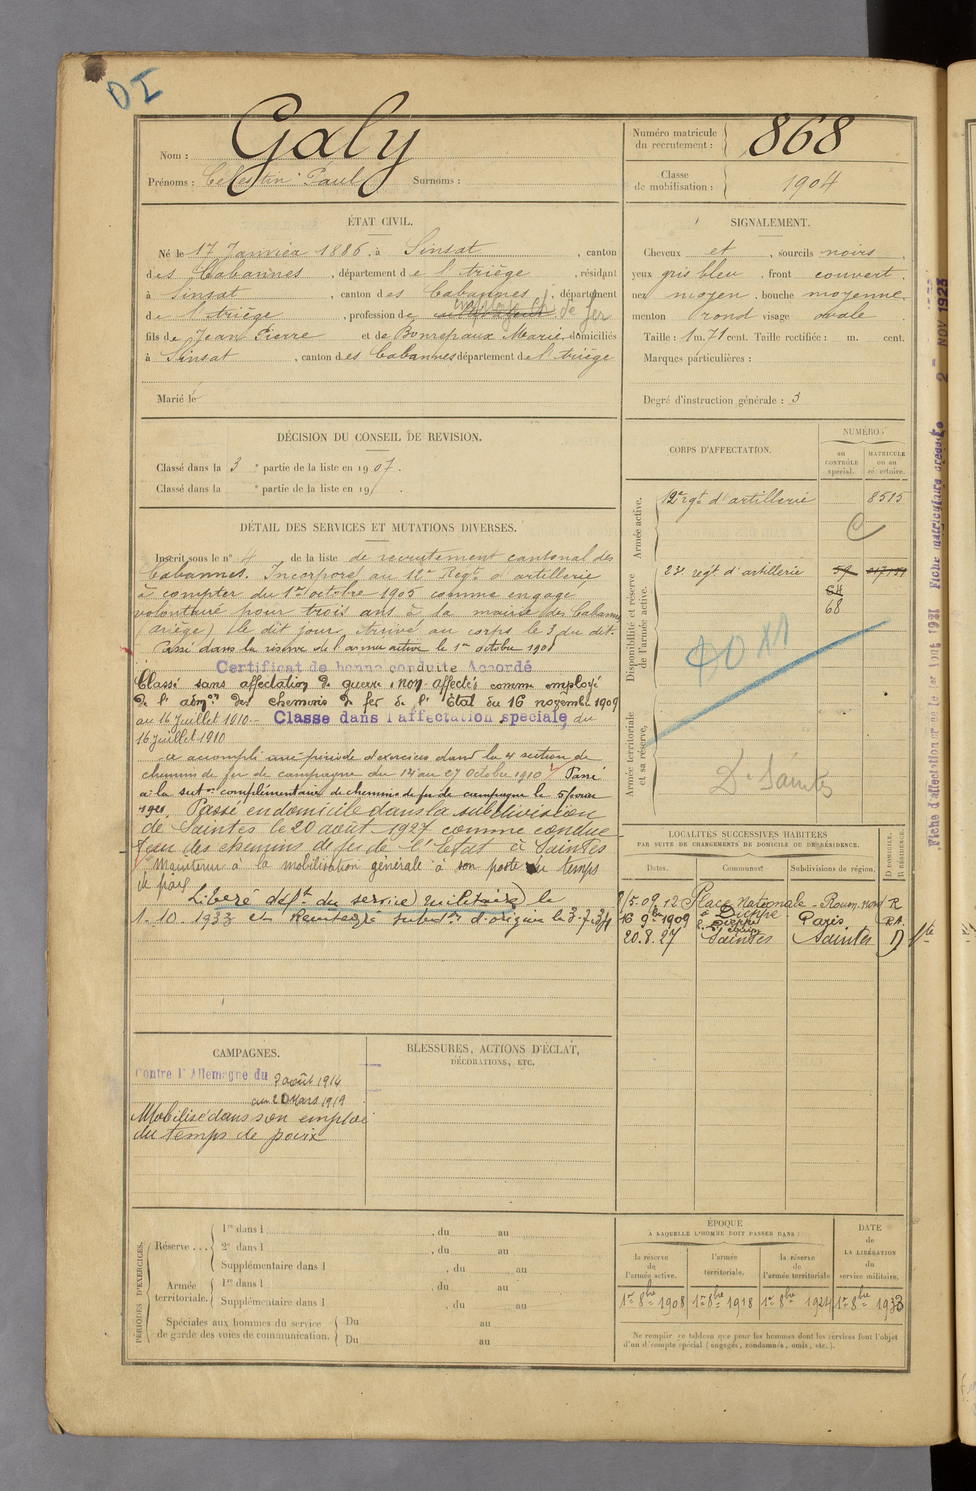 DI
Nom : Galy
Prénoms : Célestin Paul Surnoms :
Numéro matricule du recrutement : 868
Classe de mobilisation : 1904
ÉTAT CIVIL.
Né le 17 Janvier 1886, à Sinsat, canton
des Cabannes, département de l'Ariège, résidant
à Sinsat, canton des Cabannes, département
de l'Ariège, profession de employé ch. de fer
fils de Jean Pierre et de Bonrepaux Marie, domiciliés
à Sinsat, canton des Cabannes département de l'Ariège
Marié le
SIGNALEMENT.
Cheveux et, sourcils noirs,
yeux gris bleu, front couvert,
nez moyen, bouche moyenne,
menton rond visage ovale
Taille : 1 m. 71 cent. Taille rectifiée : m. cent.
Marques particulières :
Degré d'instruction générale : 3
DÉCISION DU CONSEIL DE REVISION.
Classé dans la 3e partie de la liste en 1907.
Classé dans la e partie de la liste en 19 .
DÉTAIL DES SERVICES ET MUTATIONS DIVERSES.
Inscrit sous le n° 4 de la liste de recrutement cantonal des
Cabannes. Incorporé au 12e Regt d'artillerie
à compter du 1er octobre 1905 comme engagé
volontaire pour trois ans à la mairie des Cabannes
(Ariège) le dit jour. Arrivé au corps le 3 du dit.
Passé dans la réserve de l'armée active le 1er octobre 1908
Certificat de bonne conduite Accordé
Classé sans affectation de guerre "non affecté" comme employé
de l'admon des chemins de fer de l'État du 16 novembre 1909
au 16 Juillet 1910 Classé dans l'affectation spéciale du
16 juillet 1910
a accompli une période d'exercices dans la 4e section de
chemin de fer de campagne du 14 au 27 octobre 1910 Passé
à la subdon complémentaire de chemins de fer de campagne le 5 février
1921. Passé en domicile dans la subdivision
de Saintes le 20 août 1927 comme conduc-
teur des chemins de fer de l'État à Saintes
Maintenu à la mobilisation générale à son poste du temps
de paix
Libéré déft du service militaire le
1.10.1933 et réintégré subdon d'origine le 3.7.34
CORPS D'AFFECTATION.
NUMÉRO :
au CONTRÔLE spécial.
MATRICULE ou au répertoire.
Armée active.
12e regt d'artillerie 8515
C
Disponibilité et réserve de l'armée active.
23e regt d'artillerie 59
64
68
Armée territoriale et sa réserve.
Dt Saintes
LOCALITÉS SUCCESSIVES HABITÉES
PAR SUITE DE CHANGEMENTS DE DOMICILE OU DE RÉSIDENCE.
Dates. Communes. Subdivisions de région. D DOMICILE. R RÉSIDENCE.
Place Nationale - Rouen-nord R
à Dieppe
16 9bre 1909 Dieppe Paris
20.8.27 Saintes Saintes D
Fiche d'affectation créée le 1er Août 1921 Fiche matriculaire dressée 2 NOV 1923
CAMPAGNES.
Contre l'Allemagne du 2 août 1914
au 20 Mars 1919
Mobilisé dans son emploi
du temps de paix
BLESSURES, ACTIONS D'ÉCLAT,
DÉCORATIONS, ETC.
PÉRIODES D'EXERCICES.
Réserve ... 1re dans l , du au
2e dans l , du au
Supplémentaire dans l , du au
Armée territoriale. 1re dans l , du au
Supplémentaire dans l , du au
Spéciales aux hommes du service de garde des voies de communication. Du au
Du au
ÉPOQUE
À LAQUELLE L'HOMME DOIT PASSER DANS :
la réserve de l'armée active.
l'armée territoriale.
la réserve de l'armée territoriale
DATE de LA LIBÉRATION du service militaire.
1er 8bre 1908 1er 8bre 1918 1er 8bre 1924 1er 8bre 1933
Ne remplir ce tableau que pour les hommes dont les services font l'objet
d'un décompte spécial (engagés, condamnés, omis, etc.).